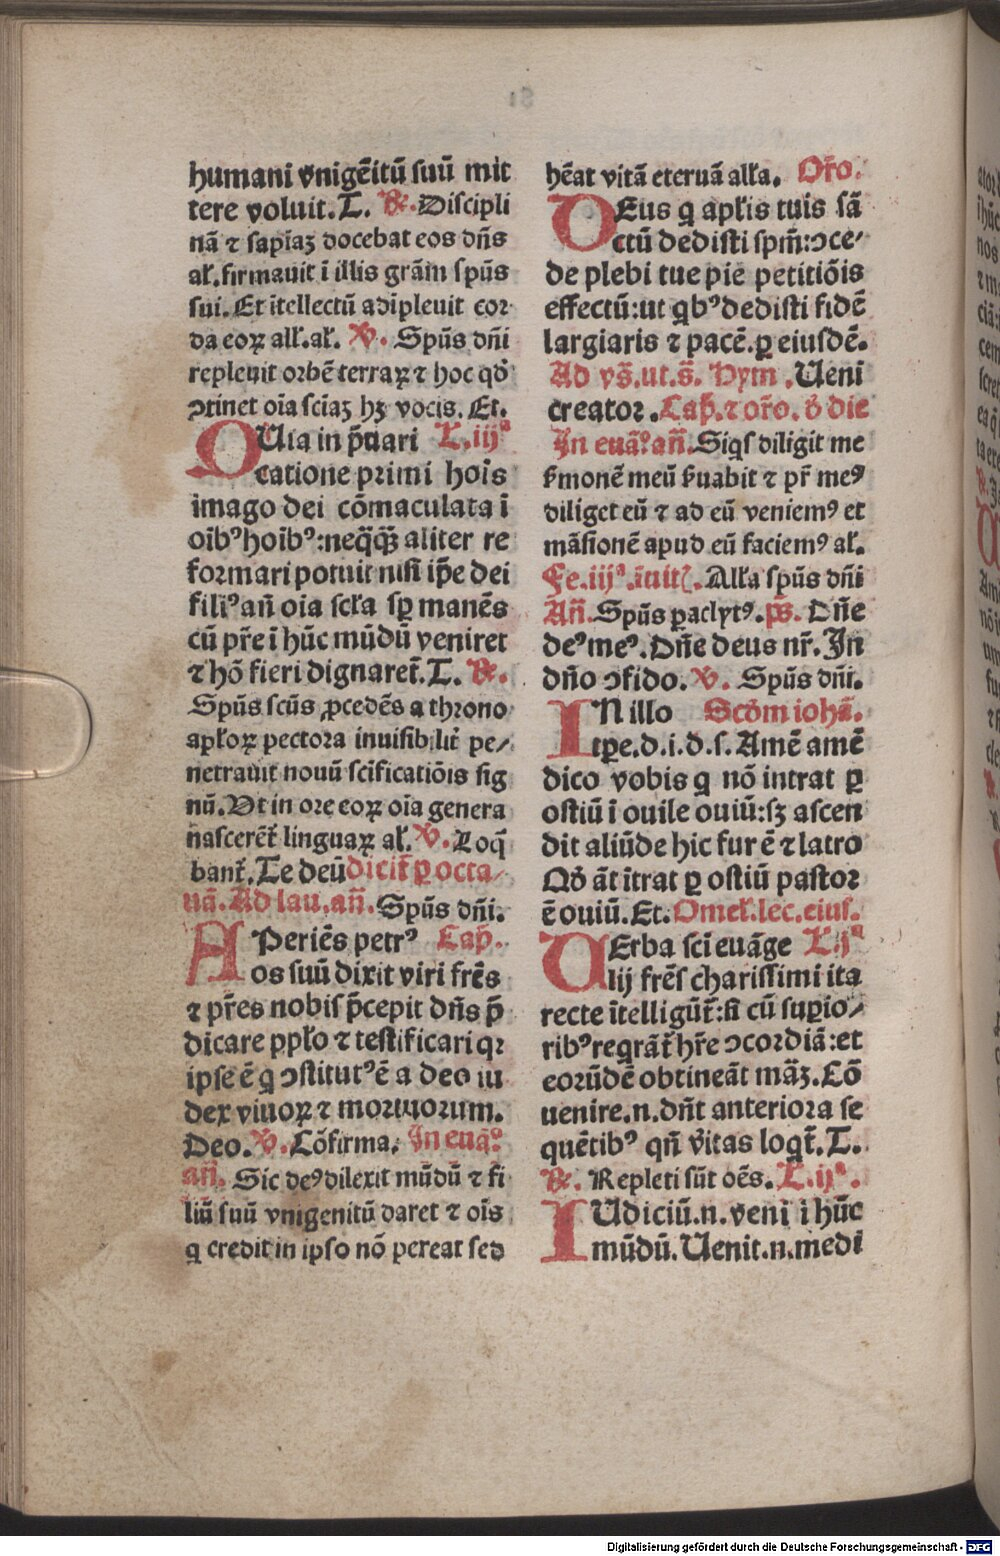 humani vnigēitū suū mit
tere voluit. T. ℟. Discipli
nā ⁊ sapiaꝫ docebat eos dn̄s
al'. firmauit ī illis grām spūs
sui. Et ītellectū adīpleuit cor
da eoꝝ all'. al'. ℣. Spūs dn̄i
repleuit orbē terraꝝ ⁊ hoc qd̓
ꝯtinet oīa sciaꝫ hꝫ vocis. Et.
QUia in p̄uari L. iijª
catione primi hois
imago dei cōmaculata ī
oībꝰ hoībꝰ: neq̄q̄ꝫ aliter re
formari potuit nisi ip̄e dei
filiꝰ an̄ oīa scła sꝑ manēs
cū pr̄e ī hūc mūdū veniret
⁊ hō fieri dignaret̄. T. ℟.
Spūs scūs ꝓcedēs a throno
apłoꝝ pectora inuisibilit̄ pe⸗
netrauit nouū scificatiōis sig
nū. Vt in ore eoꝝ oīa genera
nascerēt̄ linguaꝝ al'. ℣. Loq̄
bant̄. Te deū dicit̄ ꝑ octa⸗
uā. Ad lau. an̄. Spūs dn̄i.
APeriēs petrꝰ Cap̄.
os suū dixit viri fr̄es
⁊ pr̄es nobis p̄cepit dn̄s p̄
dicare ppło ⁊ testificari qꝛ
ipse ē q ꝯstitutꝰ ē a deo iu
dex viuoꝝ ⁊ mortuorum.
Deo. ℣. Cōfirma. In euāꝰ.
an̄. Sic deꝰ dilexit mūdū ⁊ fi
liū suū vnigenitū daret ⁊ oīs
q credit in ipso nō pereat sed
hēat vitā eternā alła. Or̄o.
DEus q apłis tuis sā
ctū dedisti spm̄: ꝯce⸗
de plebi tue pie petitiōis
effectū: ut qbꝰ dedisti fidē
largiaris ⁊ pacē. ꝑ eiusdē.
Ad vs̄. ut. s̄. Hym. Ueni
creator. Cap̄. ⁊ or̄o. d̓ die
In euāꝰ. an̄. Siqs diligit me
s̄monē meū s̄uabit ⁊ pr̄ meꝰ
diliget eū ⁊ ad eū veniemꝰ et
māsionē apud eū faciemꝰ al'.
Fe. iijª. īuit⁊. Alła spūs dn̄i
An̄. Spūs paclytꝰ. ps̄. Dn̄e
deꝰ meꝰ. Dn̄e deus nr̄. In
dn̄o ꝯfido. ℣. Spūs dn̄i.
IN illo Scd̓m iohā.
tꝑe. d. i. d. s. Amē amē
dico vobis q nō intrat ꝑ
ostiū ī ouile ouiū: sꝫ ascen
dit aliūde hic fur ē ⁊ latro
Qd̓ āt ītrat ꝑ ostiū pastor
ē ouiū. Et. Omel'. lec. eius.
UErba sci euāge L. jª
lij fr̄es charissimi ita
recte ītelligūt̄: si cū suꝑio⸗
ribꝰ reqrāt̄ hr̄e ꝯcordiā: et
eorūdē obtineāt māꝫ. Cō
uenire. n. dn̄t anteriora se
quētibꝰ qn̄ v̓itas loqt̄. T.
℟. Repleti sūt oēs. L. ijª.
IUdiciū. n. veni ī hūc
mūdū. Uenit. n. medi
Digitalisierung gefördert durch die Deutsche Forschungsgemeinschaft - DFG